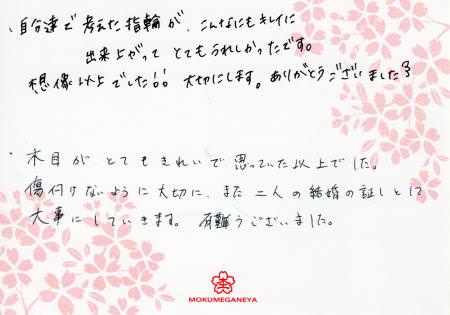 ・自分達で考えた指輪が、こんなにもキレイに
出来上がって とてもうれしかったです。
想像以上でした!! 大切にします。ありがとうございました♪
・木目が とても きれいで 思っていた以上でした。
傷付けないように大切に、また 二人の結婚の証しとして
大事にしていきます。 有難うございました。
MOKUMEGANEYA